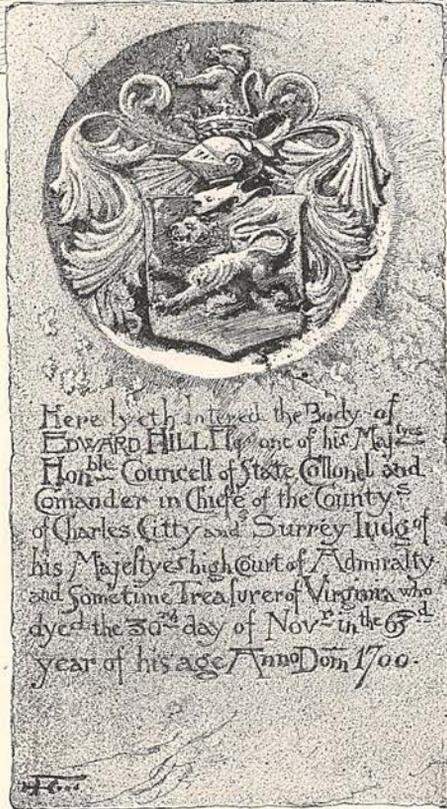 Here lyeth Intered the Body of
EDWARD HILL Esq one of his Majtyes
Honble Councell of State, Collonel and
Comander in Chiefe of the Countys
of Charles Citty and Surrey Iudg of
his Majestyes high Court of Admiralty
and Sometime Treasurer of Virginia who
dyed the 30th day of Novr in the 63d
year of his age Anno Dom̄ 1700.